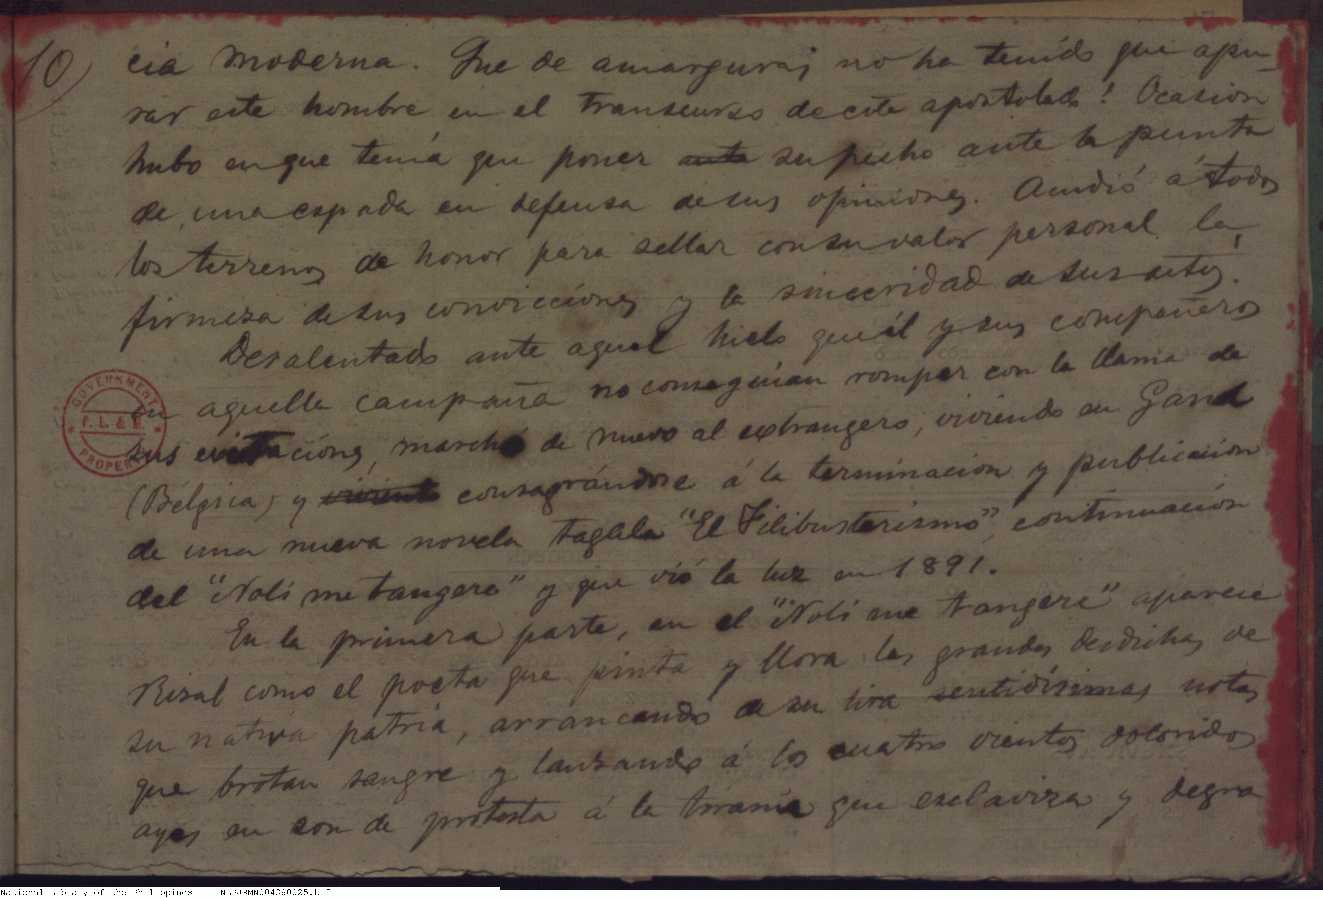 10
cia moderna. Que de amarguras no ha tenido que apu-
rar este hombre en el transcurso de este apostolado! Ocasion
hubo en que tenía que poner ante su pecho ante la punta
de una espada en defensa de sus opiniones. Acudió á todos
los terrenos de honor para sellar con su valor personal la
firmeza de sus convicciones y la sinceridad de sus actos.
Desalentado ante aquel hielo que él y sus compañeros
en aquella campaña no conseguian romper con la llama de
sus excitaciones, marchó de nuevo al extrangero, viviendo en Gand
(Bélgica) y viviendo consagrándose á la terminacion y publicacion
de una nueva novela tagala "El Filibusterismo", continuación
del "Noli me tangere" y que vió la luz en 1891.
En la primera parte, en el "Noli me tangere" aparece
Rizal como el poeta que pinta y llora las grandes desdichas de
su nativa patria, arrancando de su lira sentidísimas notas
que brotan sangre y lanzando á los cuatro vientos doloridos
ayes en son de protesta á la tiranía que esclaviza y degra
GOVERNMENT
P. L. & M.
PROPERTY
National Library of the Philippines